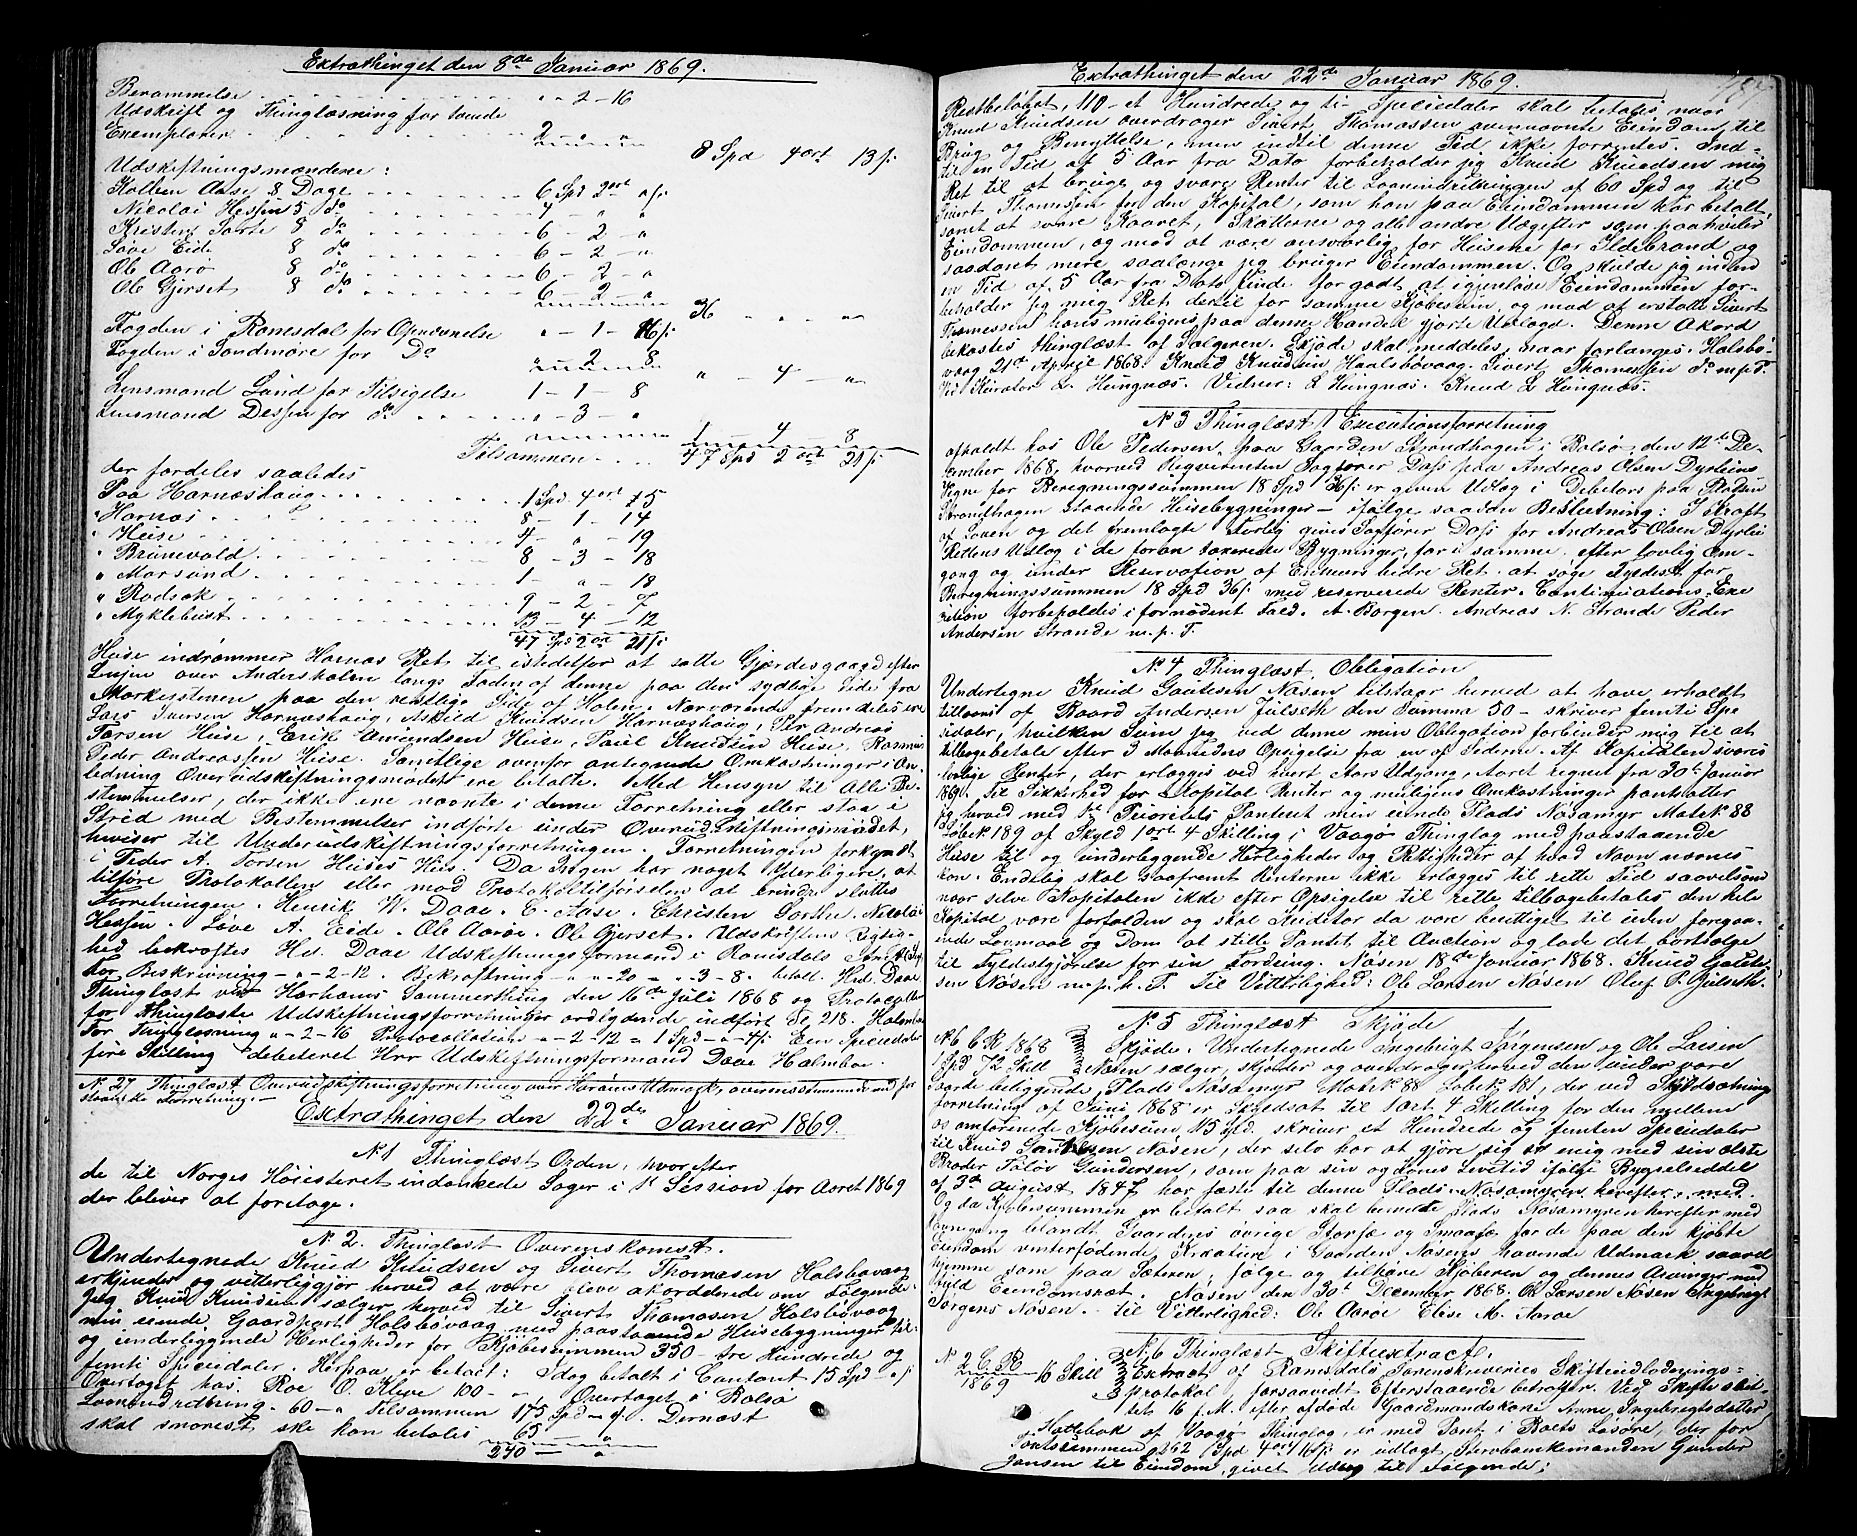 Extrathinget den 8de Januar 1869.
Berammelse " - 2 - 16
Udskrift og Thinglæsning for tvende
Exemplarer 2 - " - "
8 Spd 4 ort 13 ſ
Udskiftningsmændene:
Kolben Aase 8 Dage 6 Spd 2 ort " ſ
Nicolai Hessen 5 do 4 - " - "
Kristen Sorte 8 do 6 - 2 - "
Løve Eide 8 do 6 - 2 - "
Ole Aarø 8 do 6 - 2 - "
Ole Gjerset 8 do 6 - 2 - "
36 " "
Fogden i Romsdal for Opnævnelse " - 1 - 16 ſ
Fogden i Søndmøre for Do " - 2 - 8
" - 4 - "
Lensmand Lund for Tilsigelse 1 - 1 - 8
Lensmand Dessen for do " - 3 - "
1 - 4 - 8
Tilsammen 47 Spd 2 ort 21 ſ
der fordeles saaledes
Paa Harnæshaug 1 Spd 4 ort 15
" Harnæs 8 - 1 - 14
" Huse 4 - " - 19
" Brunevold 8 - 3 - 18
" Morsund 1 - " - 18
" Rødsæk 9 - 2 - 7
" Myklebust 13 - 4 - 12
47 Spd 2 ort 21 ſ
Huse indrømmer Harnæs Ret til istedetfor at sætte Gjerdesgaard efter
Linjen over Andersholen langs Foden af denne paa den sydlige Side fra
Markesstenen paa den vestlige Side af Holen. Nærværende fremdeles ere
Lars Iversen Harnæshaug, Askild Knudsen Harnæshaug, Per Andreas
Larsen Huse, Erik Amundsen Huse, Paul Knudsen Huse, Rasmus
Peder Andreassen Huse. Samtlige ovenfor antegnede Omkostninger i An-
ledning Overudskiftningsmødet ere betalte. Med Hensyn til Alle Be-
stemmelser, der ikke ere nævnte i denne Forretning eller staa i
Strid med Bestemmelser indførte under Overudskiftningsmødet,
henvises til Underudskiftningsforretningen. Forretningen forkyndt
i Peder A. Larsen Huses Hus. Da Ingen har noget yderligere at
tilføre Protokollen eller mod Protokoltilførselen at erindre sluttes
Forretningen. Henrik W. Daae. C. Aase. Christen Sorthe. Nicolai
Hessen. Løve A. Eide. Ole Aarøe. Ole Gjerset. Udskriftens Rigtig-
hed bekræftes Hd. Daae Udskiftningsformand i Romsdals Amt
For Beskrivning - " - 2 - 12. Bekræftning - " - 20 = " - 3 - 8. betalt. Hd. Daae
Thinglæst ved Harhams Sommerthing den 16de Juli 1868 og Protocollen
for Thinglæste Udskiftningsforretninger ordlydende indført Fol 218. Holmboe
For Thinglæsning " - 2 - 16 Protocollation " - 2 - 12 = 1 Spd - " - 4 ſ Een Speciedaler
fire Skilling debiteret Hrr Udskiftningsformand Daae Holmboe
No 27 Thinglæst Overudskiftningsforretning over Harams Udmark, overensstemmende med for
staaende Forretning. -
Extrathinget den 22de Januar 1869.
No 1 Thinglæst Orden, hvorefter
de til Norges Høiesteret indankede Sager i 1ste Session for Aaret 1869
der bliver at foretage.
No 2. Thinglæst Overenskomst.
Undertegnede Knud Knudsen og Sivert Thomasen Halsbøvaag
erkjender og vitterliggjør herved at være bleve akorderede om Følgende:
Jeg Knud Knudsen sælger herved til Sivert Thomasen Halsbøvaag
min eiende Gaardpart Halsbøvaag med paastaaende Husebygninger til-
og underleggende Herligheder for Kjøbesummen 350 - tre Hundrede og
femti Speciedaler. Herpaa er betalt: Idag betalt i Contant 15 Spd " ſ
Overtaget hos Roe O. Kleve 100 - " Overtaget i Bolsø
Laanindretning. 60 - " Tilsammen 175 Spd - " ſ. Dernæst
skal snarest ske kan betales 65 - "
240 - "
Extrathinget den 22de Januar 1869.
Restbeløbet, 110 - et Hundrede og ti - Speciedaler skal betales naar
Knud Knudsen overdrager Sivert Thomassen ovennævnte Eiendom til
Brug og Benyttelse, men indtil denne Tid ikke forrentes. Ind-
til en Tid af 5 Aar fra Dato forbeholder jeg Knud Knudsen mig
Ret til at bruge og svare Renter til Laanindretningen af 60 Spd og til
Sivert Thomassen for den Kapital, som han paa Eiendommen har betalt,
samt at svare Kaaret, Skatterne og alle andre Udgifter som paahviler
Eiendommen, og mod at være ansvarlig for Husene for Ildebrand og
saadant mere saalænge jeg bruger Eiendommen. Og skulde jeg inden
en Tid af 5 Aar fra Dato finde for godt at igjenløse Eiendommen for-
beholder jeg mig Ret dertil for samme Kjøbesum, og mod at erstatte Sivert
Thomessen hans muligens paa denne Handel gjorte Udlæg. Denne Akord
bekostes thinglæst af Sælgeren. Skjøde skal meddeles, naar forlanges. Halsbø-
vaag 21de April 1868. Knud Knudsen Haalsbøvaag. Sivert Thomassen do m.p.P.
Til Kurator L. Hungnæs. Vidner: L Hungnæs. Knud L Hungnæs.
No 3 Thinglæst Executionsforretning
afholdt hos Ole Pedersen paa Gaarden Strandhagen i Bolsø den 12te De-
cember 1868, hvorved Reqvirenten Sagfører Dass paa Andreas Olsen Dyrleius
Vegne for Beregningssummen 18 Spd 36 ſ er given Udlæg i Debitors paa Pladsen
Strandhagen staaende Husebygninger - ifølge saadan Beslutning: I Kraft
af Loven og det fremlagte Forlig gives Sagfører Dass for Andreas Olsen Dyrlei
Rettens Udlæg i de foran taxerede Bygninger, for i samme efter lovlig Om-
gang og under Reservation af Enhvers bedre Ret at søge Fyldest for
Beregningssummen 18 Spd 36 ſ med reserverede Renter. Continuations Exe
cution forbeholdes i fornødent Fald. A. Borgen. Andreas N. Strande Peder
Andersen Strande m.p.P.
No 4 Thinglæst Obligation
Undertegnede Knud Gautesen Nåsen tilstaar herved at have erholdt
tillaans af Baard Andersen Julseth den Summa 50 - skriver femti Spe
siedaler, hvilken Sum jeg ved denne min Obligation forbinder mig til at
tilbagebetale efter 3 Maaneders Opsigelse fra en af Siderne. Af Kapitalen svares
lovlige Renter, der erlægges ved hvert Aars Udgang, Aaret regnet fra 30te Januar
1869. Til Sikkerhed for Kapital Renter og muligens Omkostninger pantsætter
jeg herved med 1ste Prioritets Panteret min eiende Plads Nåsamyr Matr No 88
Løbe No 189 af Skyld 1 ort 4 Skilling i Vaagø Thinglag med paastaaende
Huse til og underleggende Herligheder og Rettigheder af hvad Navn nævnes
kan. Endelig skal saafremt Renterne ikke erlægges til rette Tid saavelsom
naar selve Kapitalen ikke efter Opsigelse til rette tilbagebetales den hele
Kapital være forfalden og skal Kreditor da være berettiget til uden foregaa-
ende Lovmaal og Dom at stille Pantet til Auction og lade det bortsælge
til Fyldestgjørelse for sin Fordring. Nåsen 18de Januar 1868. Knud Gautes
sen Nåsen m.p.P. Til Vitterlighed: Ole Larsen Nåsen Oluf P. Gjelseth.
No 5 Thinglæst Skjøde
No 6 6 R 1868
1 Spd 72 Skill
Skjøde. Undertegnede Ingebrigt Jørgensen og Ole Larsen
Nåsen sælger, skjøder og overdrager herved den under vore
Gaarde beliggende Plads Nåsamyr Matr No 88 Løbe No 181, der ved Skyldsætnings
forretning af Juni 1868 er skyldsat til 1 ort 4 Skilling for den mellem
os omforenede Kjøbesum 115 Spd. skriver et Hundrede og femten Speciedaler
til Knud Gautesen Nåsen, der selv har at gjøre sig er enig med sin ælste
Broder Tøløv Gundersen, som paa sin og Kones Levetid ifølge Bygselseddel
af 3de August 1847 har fæste til denne Plads. Nåsamyren herefter med.
Og da Kjøbesummen er betalt saa skal bemeldte Plads Nåsamyren herefter med
Havnegang blandt Gaardens øvrige Storfæ og Smaafæ for de paa den kjøbte
Eiendom vinterfødende Kreature i Gaarden Nåsens havende Udmark saavel
hjemme som paa Sæteren, følge og tilhøre Kjøberen og dennes Arvinger med
fuld Eiendomsret. Nåsen den 30te December 1868. Ole Larsen Nåsen Engebrigt
Jørgens Nåsen. - til Vitterlighed: Ole Aarøe Elise M. Aarøe
No 6 Thinglæst Skifteextract.
No 2 E. R 1869 16 Skill
Extract af Romsdals Sorenskriveries Skifteudlodnings-
protokol, forsaavidt Efterstaaende betræffer. Ved Skifte slut-
tet 16 f. M. efter afdøde Gaardmandskone Anne Ingebrigtsdatter
Hollebak af Vaagø Thinglag, er med Pant i Boets Løsøre, der for
Taxtsummen 262 Spd 4 ort 14 ſ er udlagt Stervboenkemanden Gunder
Jansen til Eiendom, givet Udlæg til Følgende;